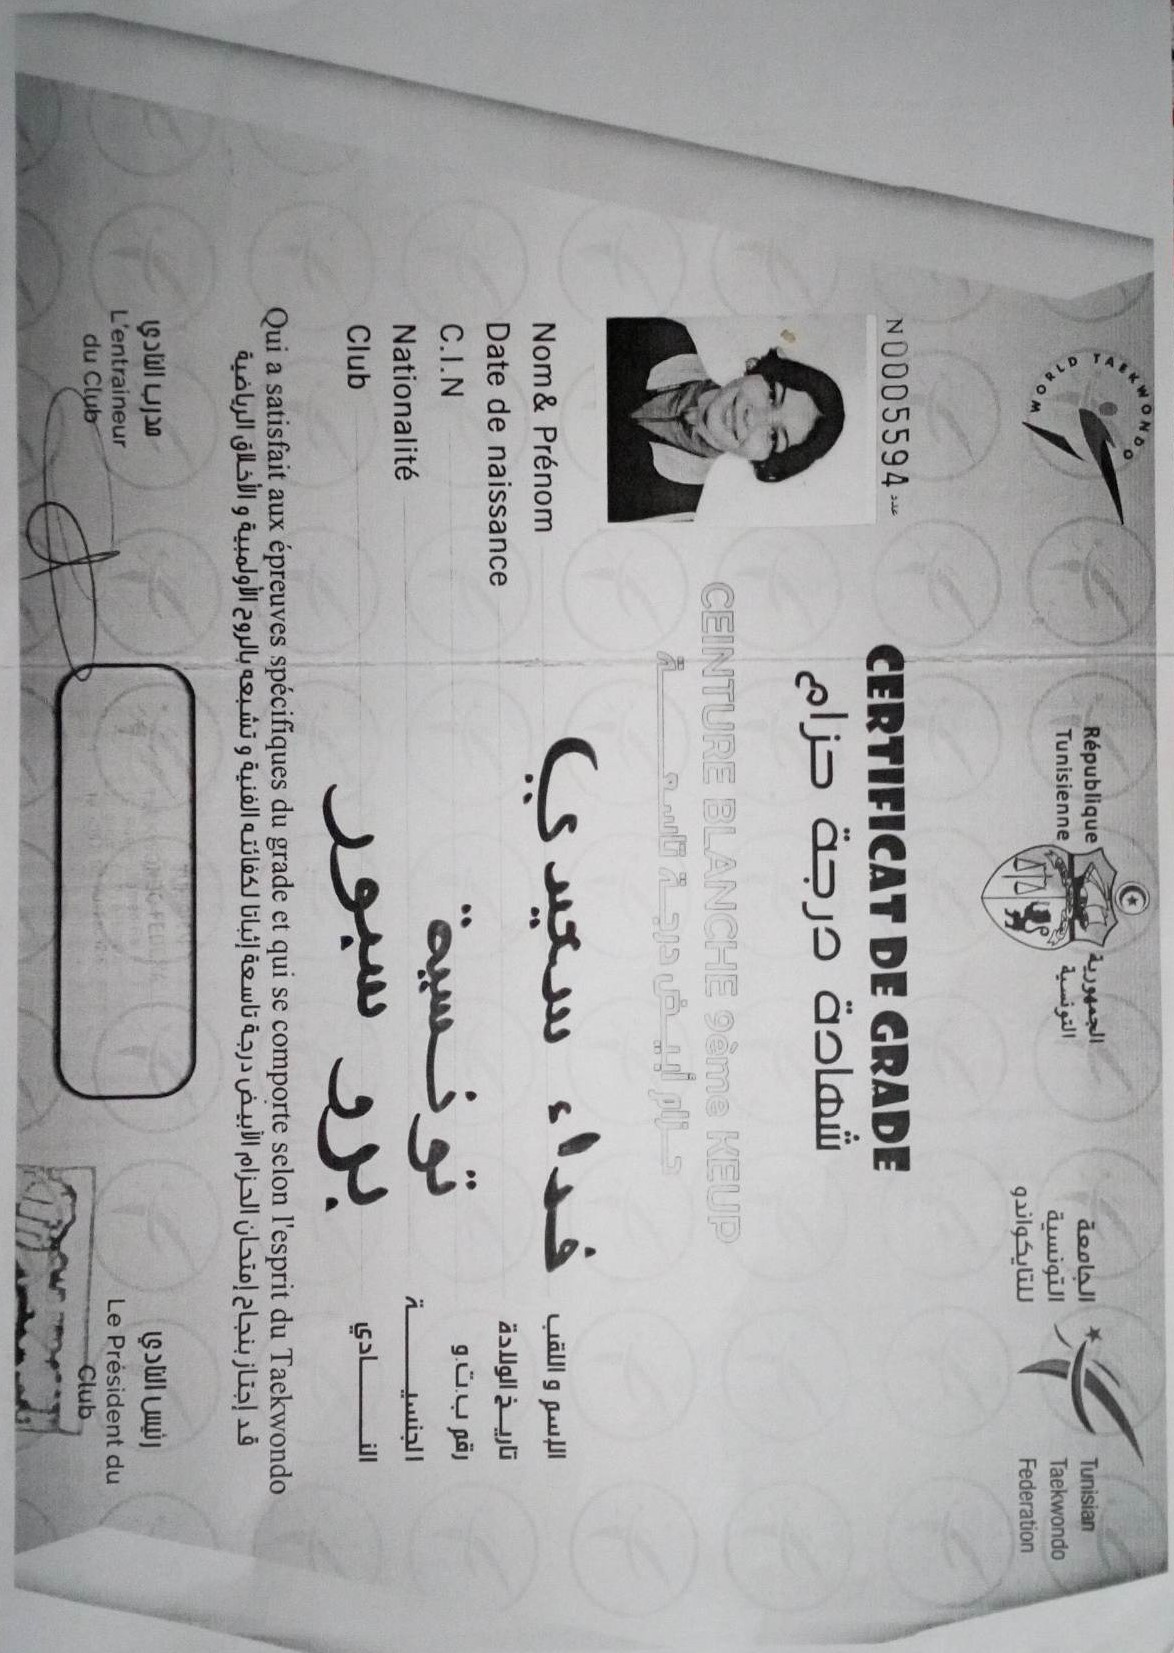 WORLD TAEKWONDO
République
Tunisienne
الجمهورية
التونسية
الجامعة
التونسية
للتايكواندو
Tunisian
Taekwondo
Federation
N0005594 عدد
CERTIFICAT DE GRADE
شهادة درجة حزام
CEINTURE BLANCHE 9ème KEUP
حزام أبيض درجة تاسعة
Nom & Prénom فداء سعيدي الإسم و اللقب
Date de naissance تاريخ الولادة
C.I.N رقم ب.ت.و
Nationalité تونسية الجنسية
Club برو سبور النادي
Qui a satisfait aux épreuves spécifiques du grade et qui se comporte selon l'esprit du Taekwondo
قد إجتاز بنجاح إمتحان الحزام الأبيض درجة تاسعة إثباتا لكفائته الفنية و تشبعه بالروح الأولمبية و الأخلاق الرياضية
مدرب النادي
L'entraineur
du Club
رئيس النادي
Le Président du
Club